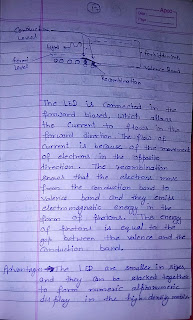 Conduction
Level
Light
Fermi
Level
Valence Band
Recombination
The LED is connected in the
forward biased, which allows
the current to flows in the
forward direction. The flow of
current is because of the movement
of electrons in the opposite
direction. The recombination
shows that the electrons move
from the conduction band to
valence band and they emits
electromagnetic energy in the
form of photons. The energy
of photons is equal to the
gap between the valence and the
conduction band.
Advantages The LED are smaller in sizes
and they can be stacked together
to form numeric alphanumeric
display in the high density matrix